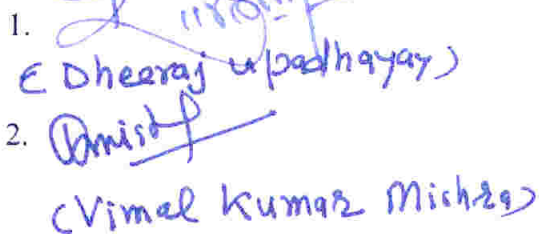 1.
(Dheeraj Upadhayay)
2.
(Vimal Kumar Mishra)